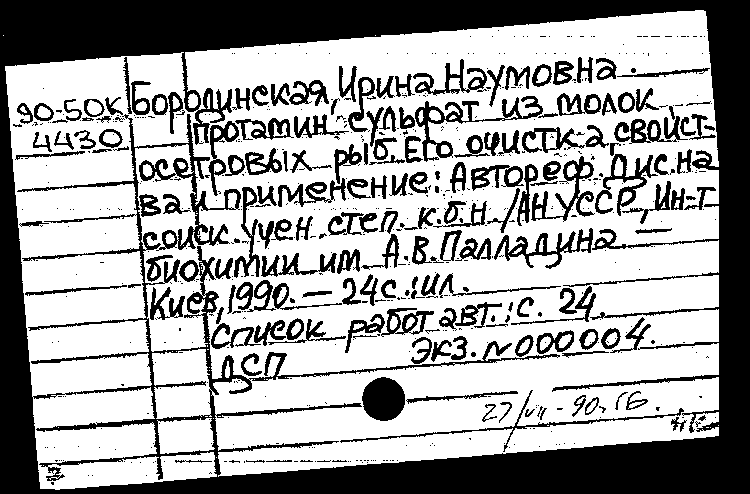 90-50К Бородинская, Ирина Наумовна.
4430 Протамин сульфат из молок
осетровых рыб. Его очистка, свойст-
ва и применение: Автореф. Дис. на
соиск. учен. степ. к.б.н. /АН УССР, Ин-т
биохимии им. А.В. Палладина. —
Киев, 1990. — 24с.: ил.
Список работ авт.: с. 24.
ДСП Экз. №000004.
27/VII-90г.